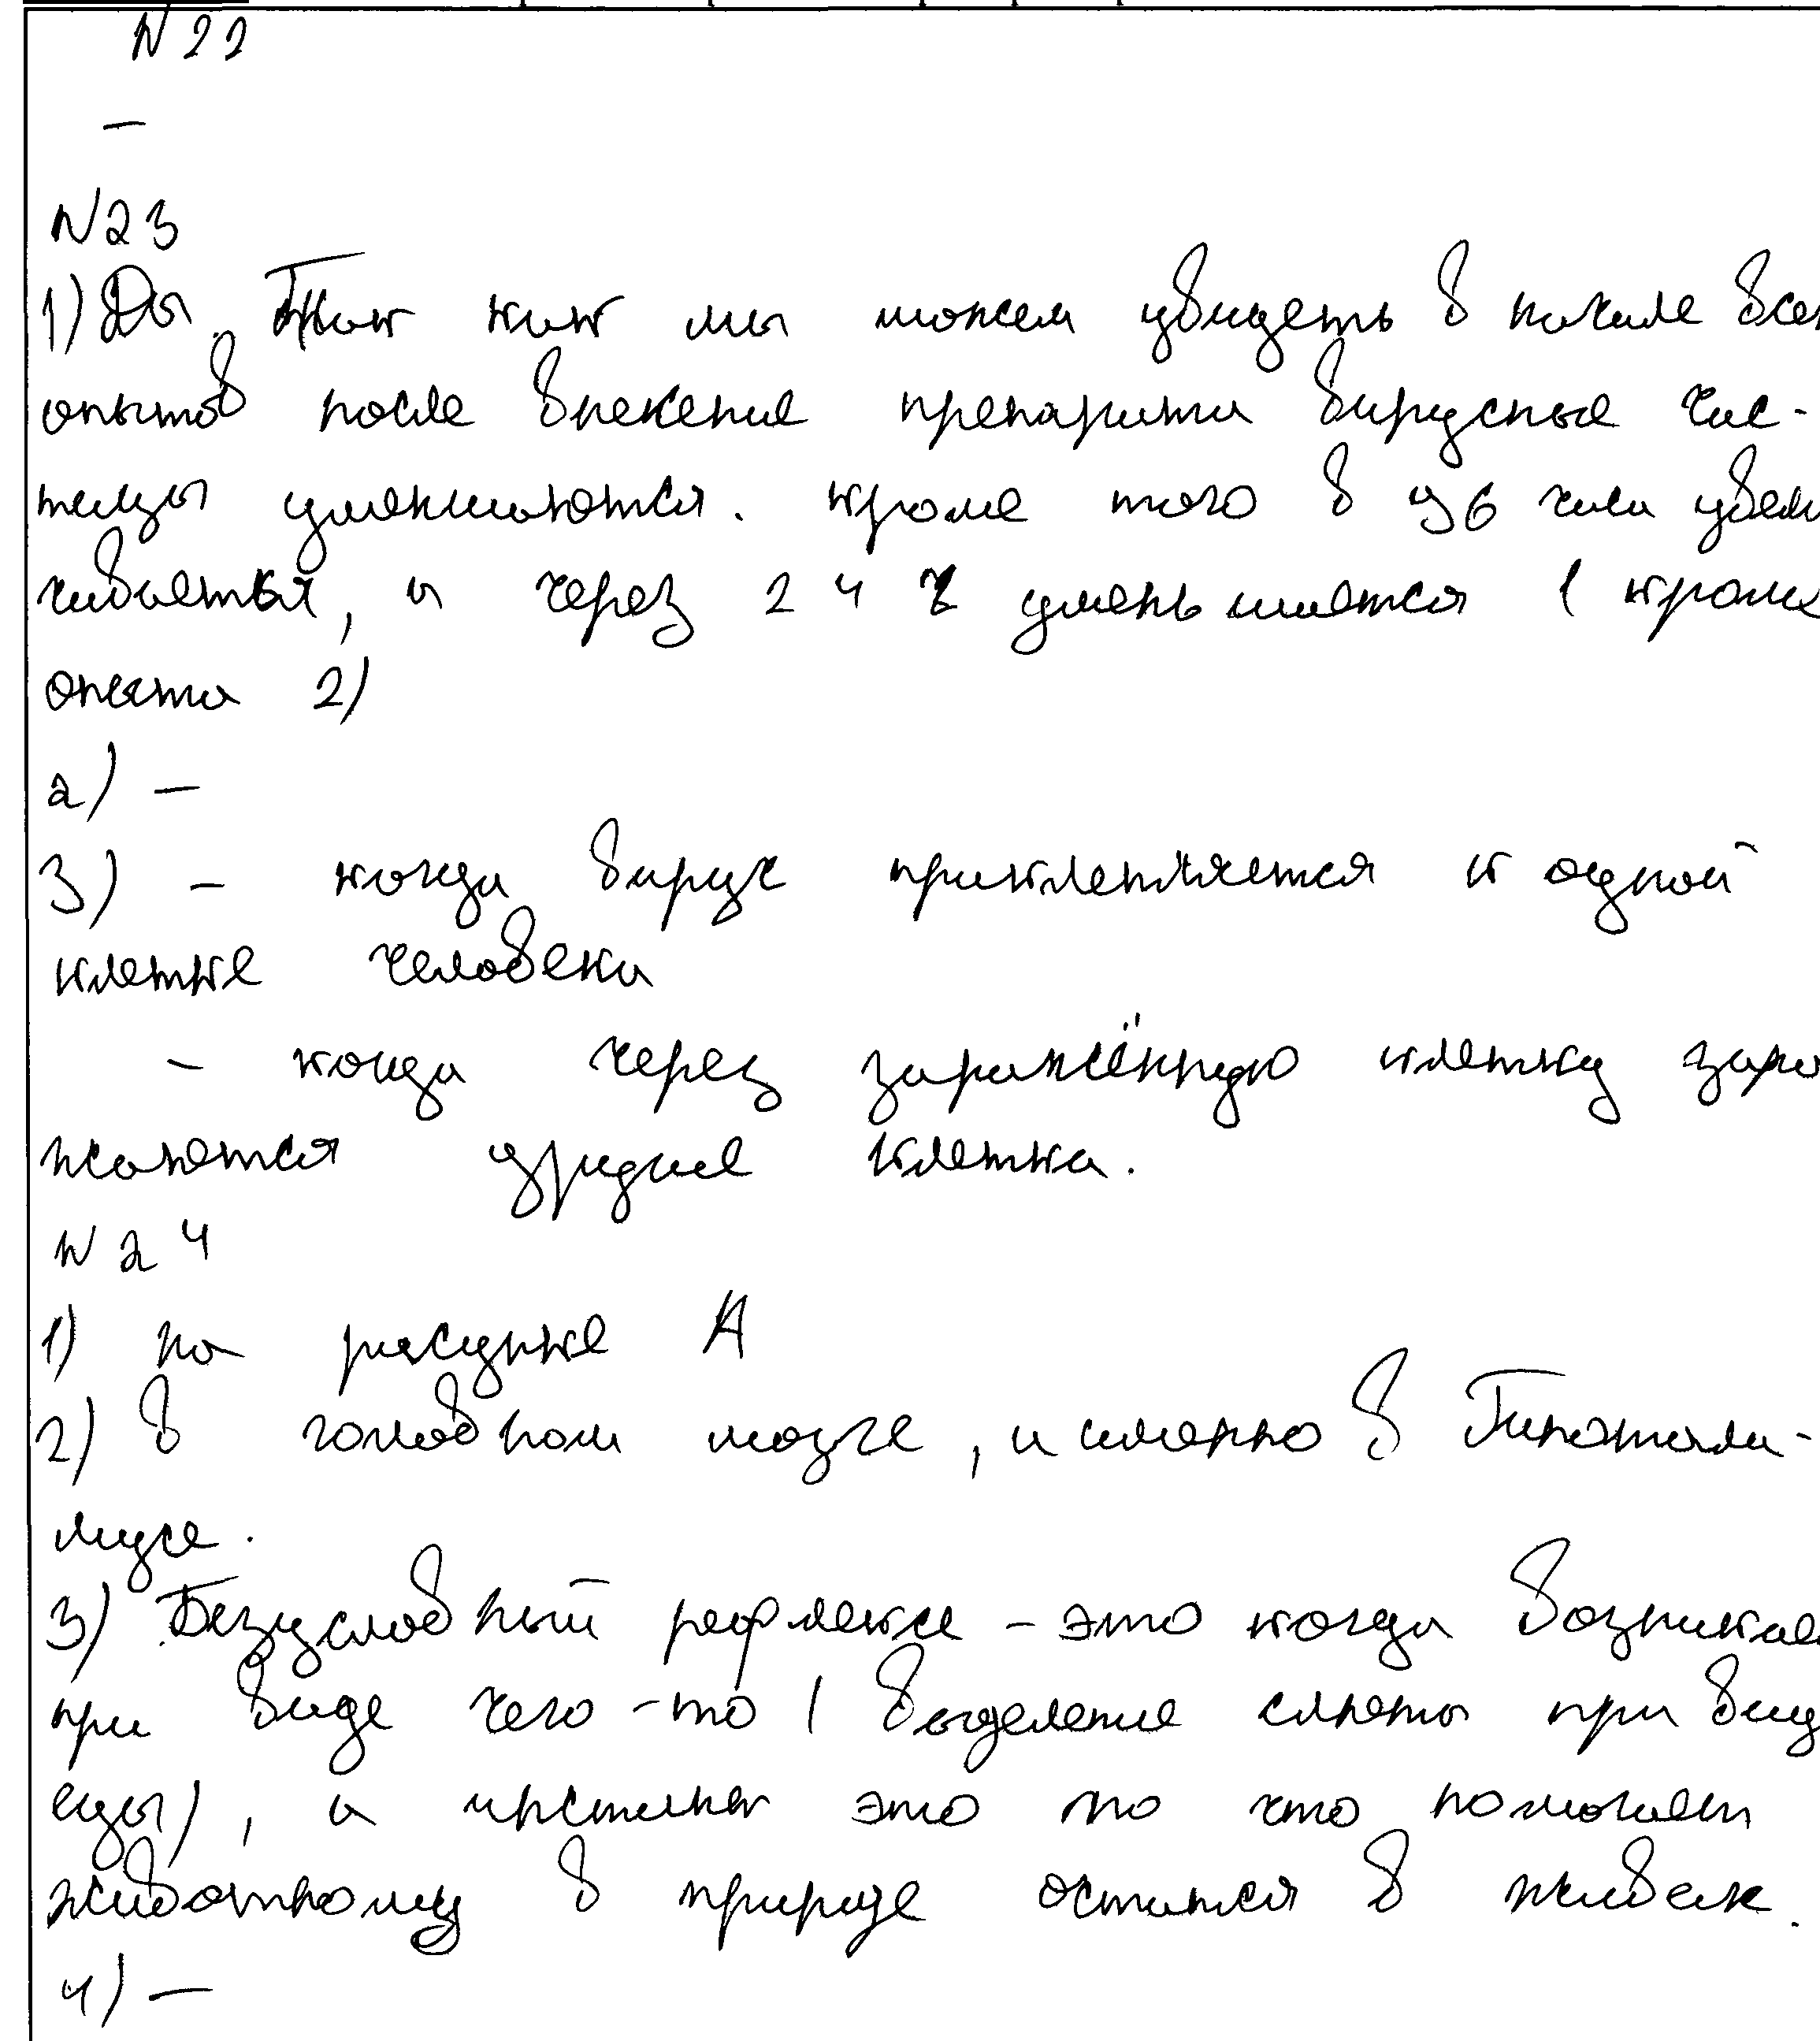 N22
–
N23
1) Да. Так как мы можем увидеть в начале всех
опытов после внежение препарата вирусные час-
тицы уменшаются. кроме того в 96 часа увели
чивается, а через 24 ч уменьшается (кроме
опыта 2)
2) –
3) – когда вирус приклепляется к одной
клетке человека
– когда через заражённую клетку зара
жаются другие клетки.
N24
1) на рисунке А
2) в головном мозге, именно в Гипотала-
мусе.
3) Безусловный рефлекс – это когда возникае
при виде чего-то (выделение слюны при вид
еды), а инстинкт это то что помогает
животному в природе остатся в живых.
4) –